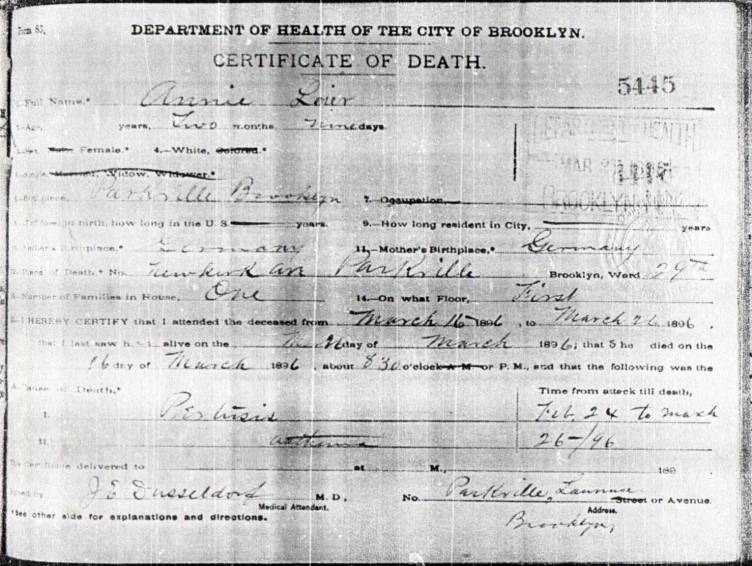 Form 85.
DEPARTMENT OF HEALTH OF THE CITY OF BROOKLYN.
CERTIFICATE OF DEATH.
5445
Full Name,* Annie Loier
Age, years, Two months, nine days
DEPARTMENT HEALTH
Female.* 4.—White, Colored.*
MAR
Married, Widow, Widower.*
BROOKLYN
Birthplace, Parkville Brooklyn 7. Occupation
If foreign birth, how long in the U. S. years. 9.—How long resident in City, years
Father's Birthplace,* Germany 11.—Mother's Birthplace,* Germany
Place of Death,* No. Newkirk Ave Parkville Brooklyn, Ward 29th
Number of Families in House, One 14.—On what Floor, First
I HEREBY CERTIFY that I attended the deceased from March 16 1896, to March 26 1896.
that I last saw h alive on the 26 day of March 1896; that she died on the
26 day of March 1896, about 8 30 o'clock A. M. or P. M., and that the following was the
Cause of Death,* Time from attack till death,
I. Pertusis Feb. 24 to march
II. 26—/96
Certificate delivered to at M., 189
Signed by J. E. Dusseldorf M. D., No. Parkville, Street or Avenue.
Medical Attendant. Address.
*See other side for explanations and directions. Brooklyn,